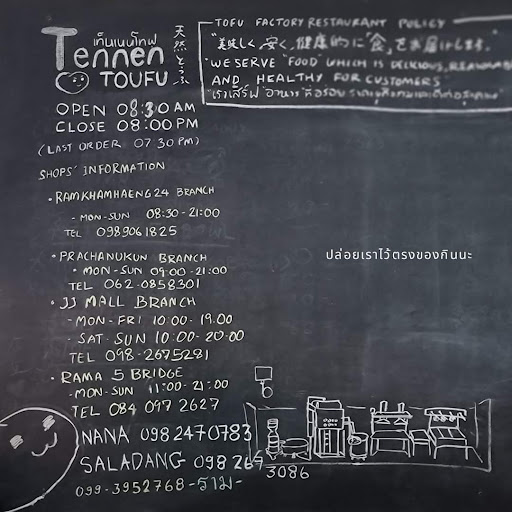 เท็นเนนโทฟุ
Tennen
TOUFU
天然とうふ
OPEN 08:30 AM
CLOSE 08:00 PM
(LAST ORDER 07 30 PM)
SHOPS' INFORMATION
• RAMKHAMHAENG 24 BRANCH
- MON-SUN 08:30 - 21:00
TEL 0989061825
• PRACHANUKUN BRANCH
• MON-SUN 09:00 - 21:00
TEL 062-0858301
• JJ MALL BRANCH
- MON - FRI 10:00 - 19.00
- SAT - SUN 10:00 - 20:00
TEL 098-2675281
• RAMA 5 BRIDGE
- MON-SUN 11:00 - 21:00
TEL 084 097 2627
NANA 098 2470783
SALADANG 098 269
3086
099-3952768 - ราม -
TOFU FACTORY RESTAURANT POLICY
"美味しく、安く、健康的に"食"をお届けします。"
"WE SERVE "FOOD" WHICH IS DELICIOUS, REASONAB
AND HEALTHY FOR CUSTOMERS"
"เราเสิร์ฟ "อาหาร" ที่อร่อย
ปล่อยเราไว้ตรงของกินนะ